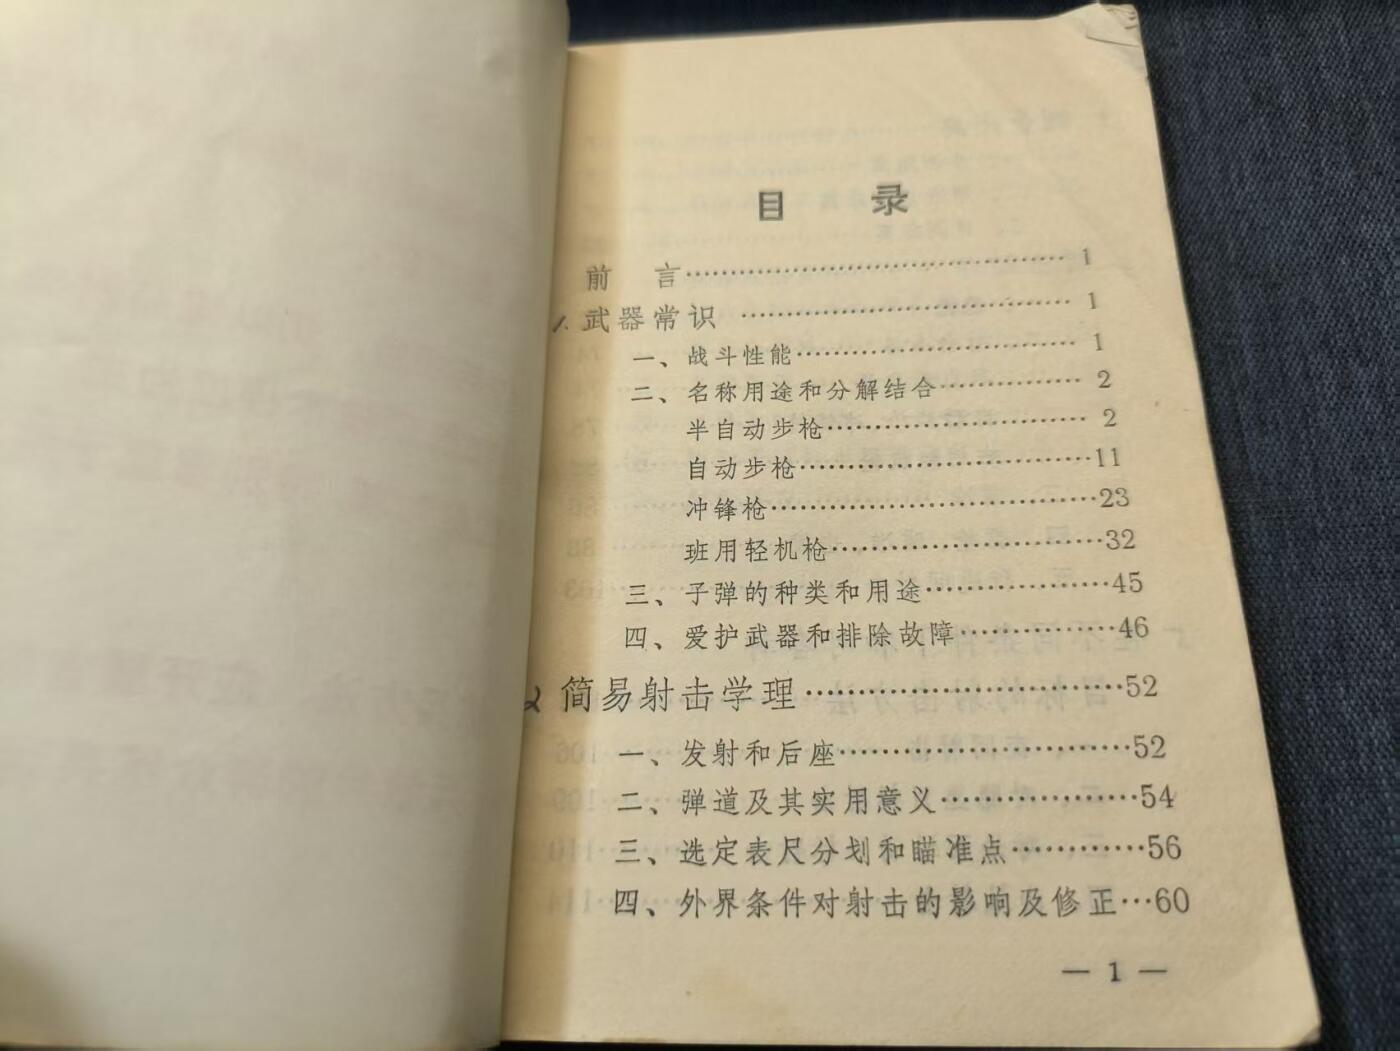 目 录
前 言……………………………………1
1.武器常识……………………………………1
一、战斗性能……………………………1
二、名称用途和分解结合……………2
半自动步枪……………………………2
自动步枪………………………………11
冲锋枪…………………………………23
班用轻机枪……………………………32
三、子弹的种类和用途………………45
四、爱护武器和排除故障……………46
2 简易射击学理……………………………52
一、发射和后座…………………………52
二、弹道及其实用意义………………54
三、选定表尺分划和瞄准点…………56
四、外界条件对射击的影响及修正…60
— 1 —